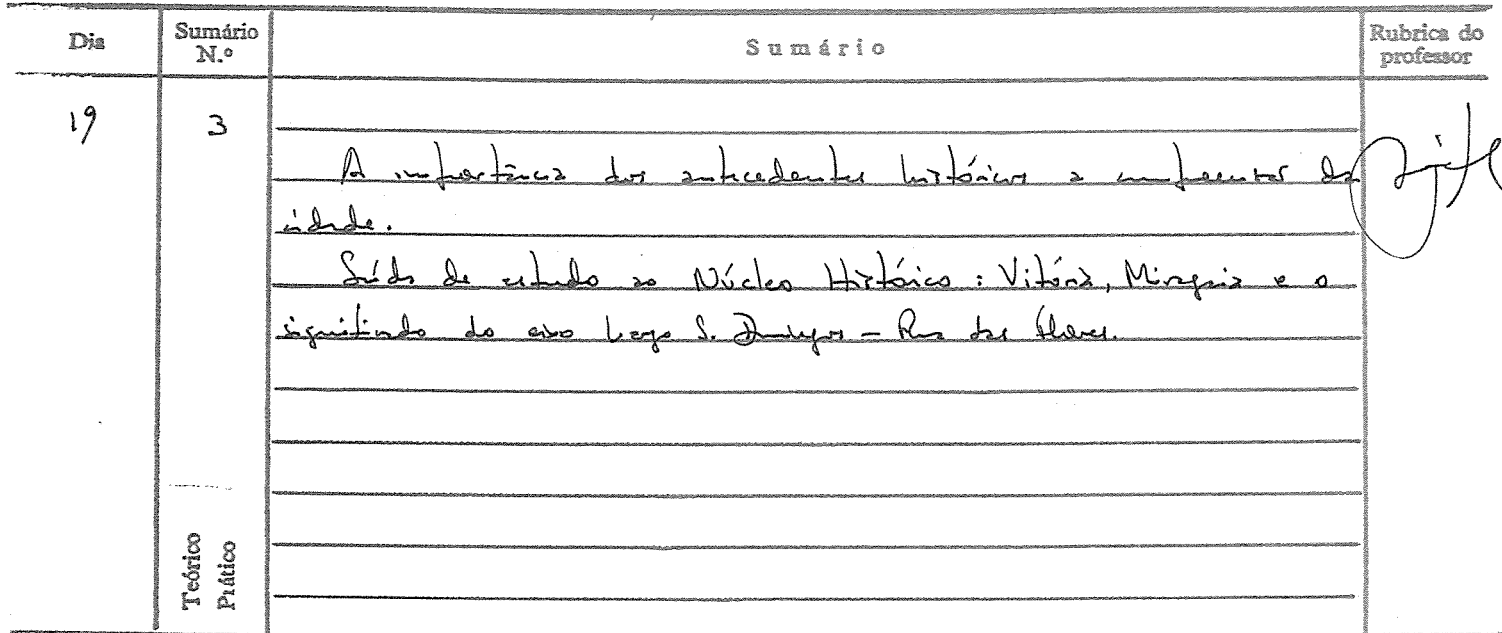 Dia
Sumário N.º
Sumário
Rubrica do professor
19
3
A importância dos antecedentes históricos a da
cidade.
Saída de estudo ao Núcleo Histórico : Vitória, Miragaia e o
significado do eixo Largo S. Domingos – Rua das Flores.
Teórico
Prático